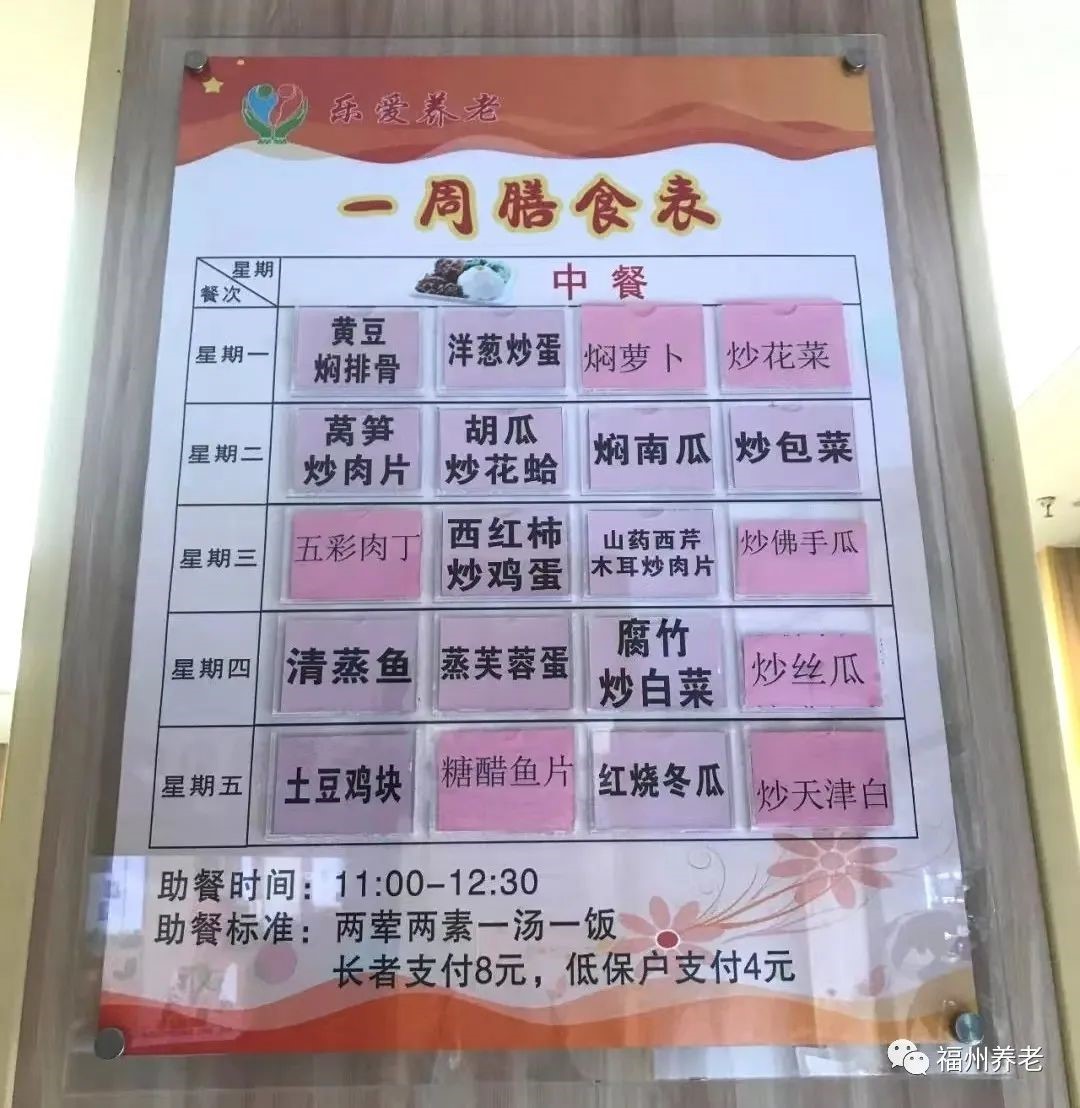 乐爱养老
一周膳食表
星期
餐次
中餐
星期一
黄豆
焖排骨
洋葱炒蛋
焖萝卜
炒花菜
星期二
莴笋
炒肉片
胡瓜
炒花蛤
焖南瓜
炒包菜
星期三
五彩肉丁
西红柿
炒鸡蛋
山药西芹
木耳炒肉片
炒佛手瓜
星期四
清蒸鱼
蒸芙蓉蛋
腐竹
炒白菜
炒丝瓜
星期五
土豆鸡块
糖醋鱼片
红烧冬瓜
炒天津白
助餐时间：11:00-12:30
助餐标准：两荤两素一汤一饭
长者支付8元，低保户支付4元
福州养老